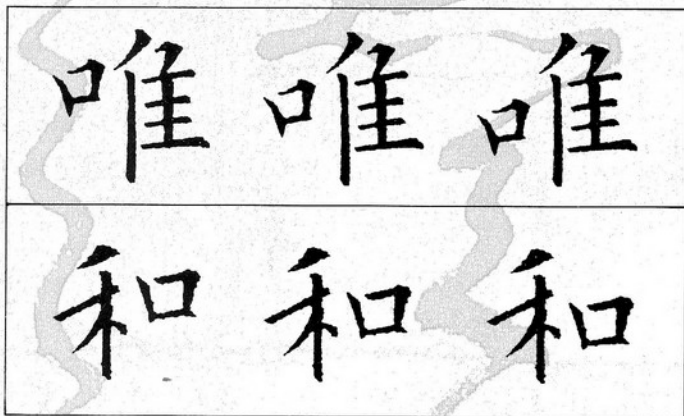 唯唯唯
和和和